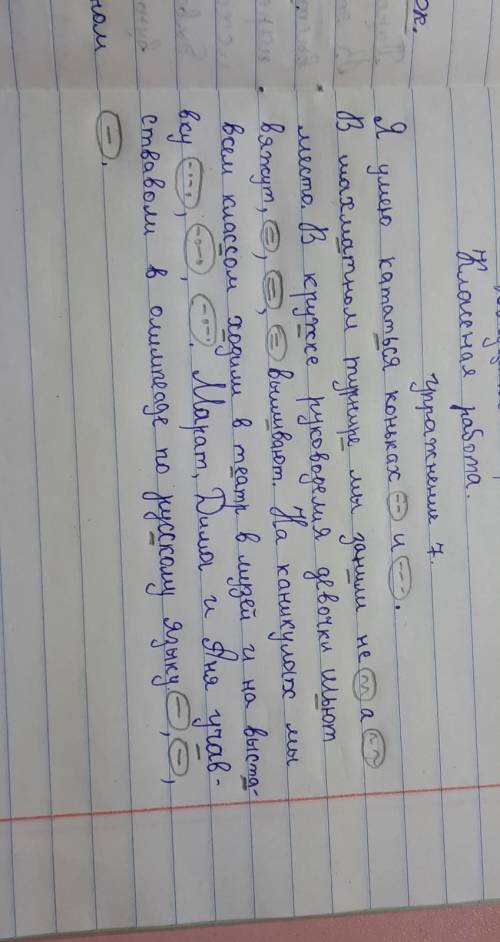 ок.
ном
Классная работа.
Упражнение 7.
Я умею кататься коньках и .
В шахматном турнире мы заняли не а
место. В кружке рукоделия девочки шьют
вяжут, , , вышивают. На каникулах мы
всем классом ходили в театр в музей и на выста-
вку , , . Марат, Дима и Яна учав-
стваволи в олимпеаде по русскому языку , ,
.